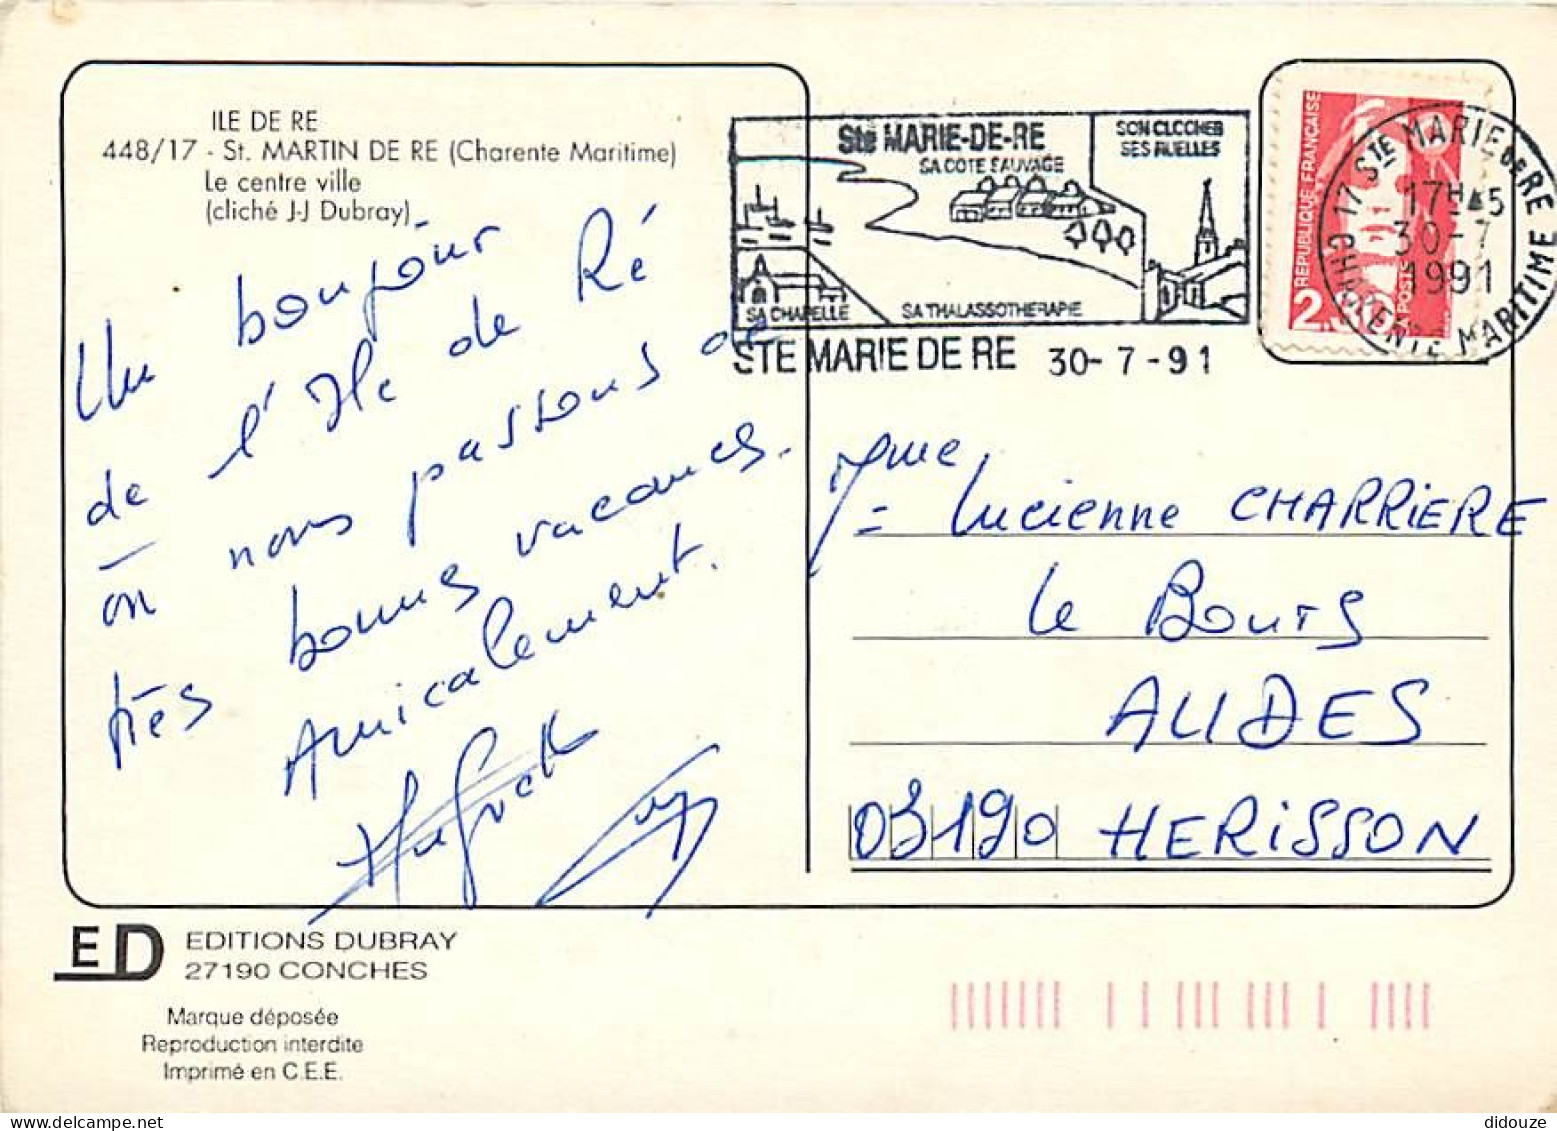 ILE DE RE
448/17 - St. MARTIN DE RE (Charente Maritime)
Le centre ville
(cliché J-J Dubray)
Un bonjour
de l'Ile de Ré
où nous passons de
très bonnes vacances.
Amicalement.
Ste MARIE-DE-RE
SA COTE SAUVAGE
SON CLOCHER
SES RUELLES
SA CHAPELLE
SA THALASSOTHERAPIE
STE MARIE DE RE 30-7-91
REPUBLIQUE FRANÇAISE
LA POSTE
17 STE MARIE DE RE
30-7
1991
CHARENTE MARITIME
Mme Lucienne CHARRIERE
Le Bourg
AUDES
03190 HERISSON
ED
EDITIONS DUBRAY
27190 CONCHES
Marque déposée
Reproduction interdite
Imprimé en C.E.E.
didouze